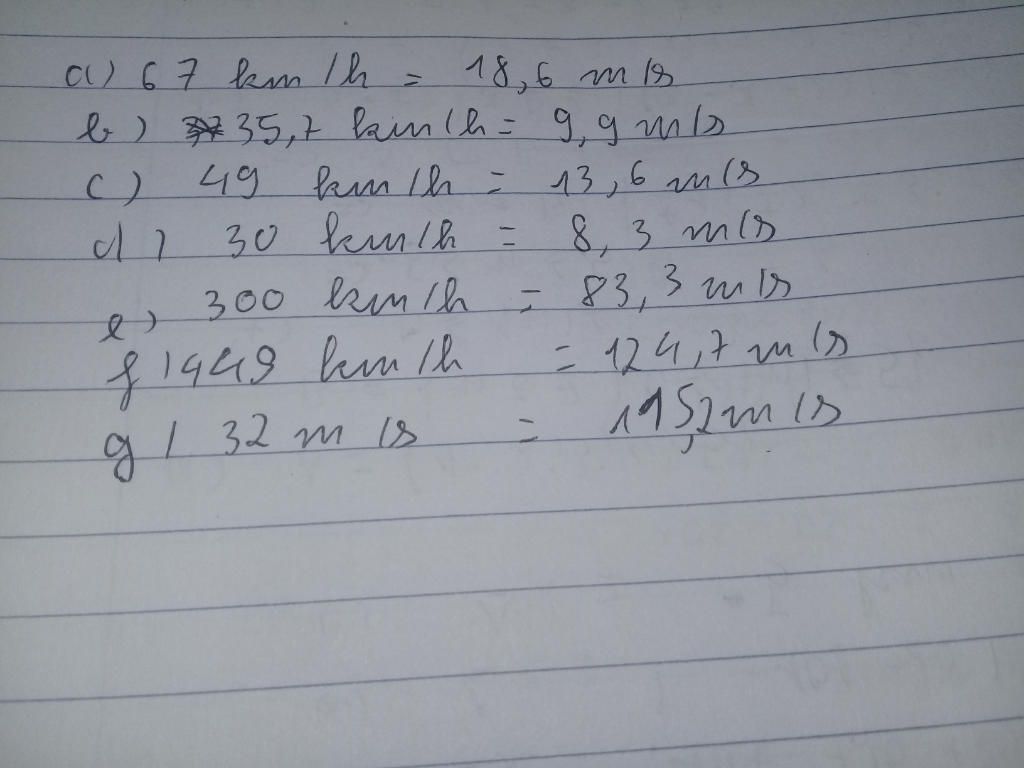 a) 67 km/h = 18,6 m/s
b) 35,7 km/h = 9,9 m/s
c) 49 km/h = 13,6 m/s
d) 30 km/h = 8,3 m/s
e) 300 km/h = 83,3 m/s
f) 449 km/h = 124,7 m/s
g) 32 m/s = 115,2 m/s